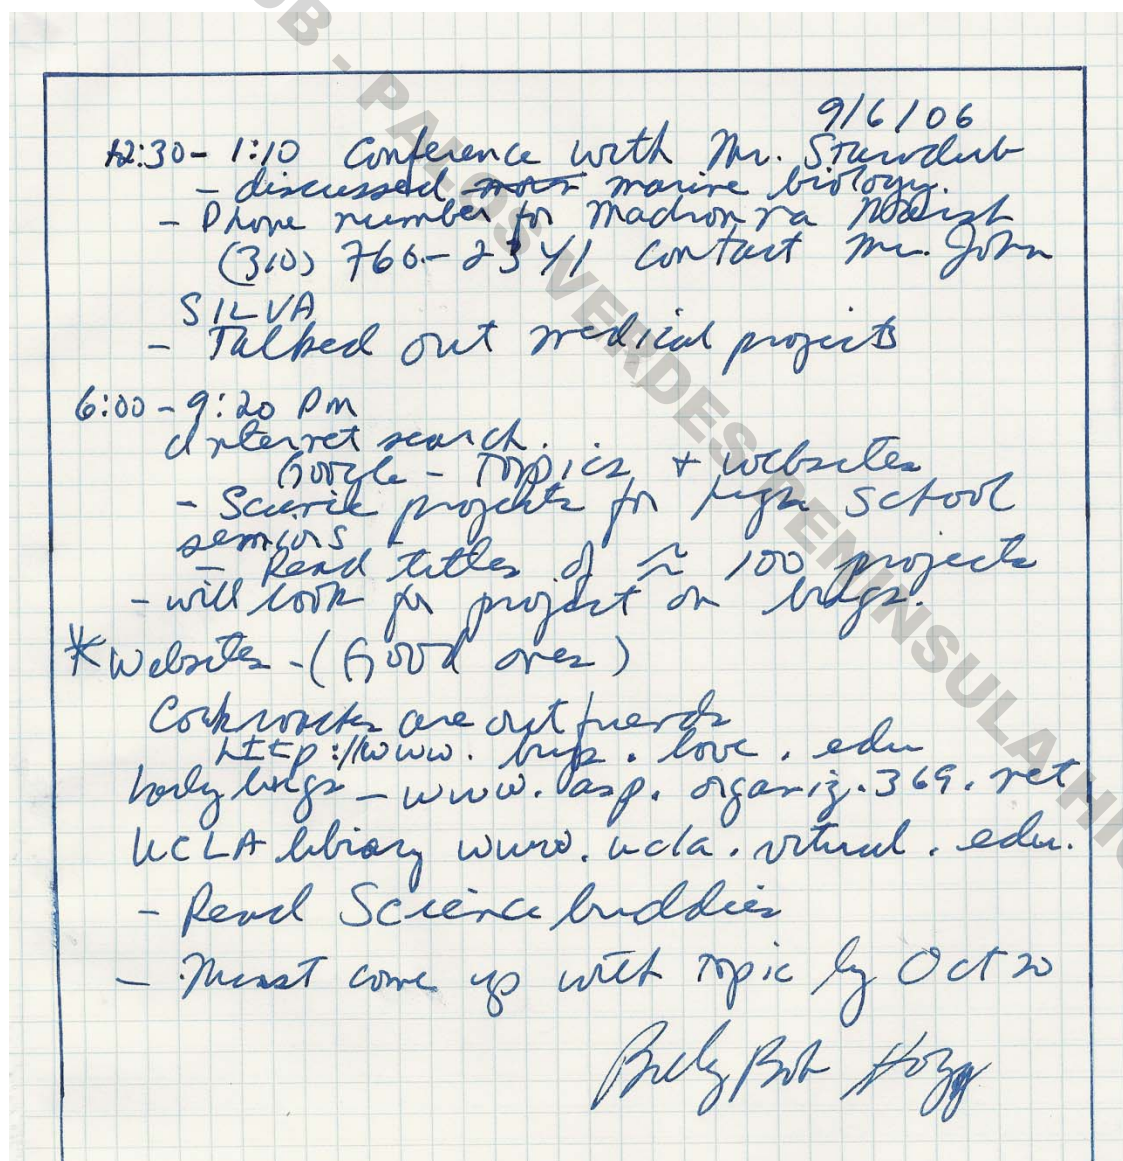 9/6/06
12:30 - 1:10 Conference with Mr. Starodub
- discussed marine biology.
- Phone number for Madrona Marsh
(310) 766-2341 Contact Mr. John
SILVA
- Talked out medical projects
6:00 - 9:20 Pm
Internet search.
Google - Topics + websites
- Science projects for high School
seniors
- Read titles of ≈ 100 projects
- will look for project on bugs.
* Websites - (Good ones)
Cockroaches are out friends
http://www.bugs.love.edu
body bugs - www.asp.organiz.369.net
UCLA library www.ucla.virtual.edu.
- Read Science buddies
- Must come up with topic by Oct 20
Billy Bob Hozz
UB - PALOS VERDES PENINSULA HIG